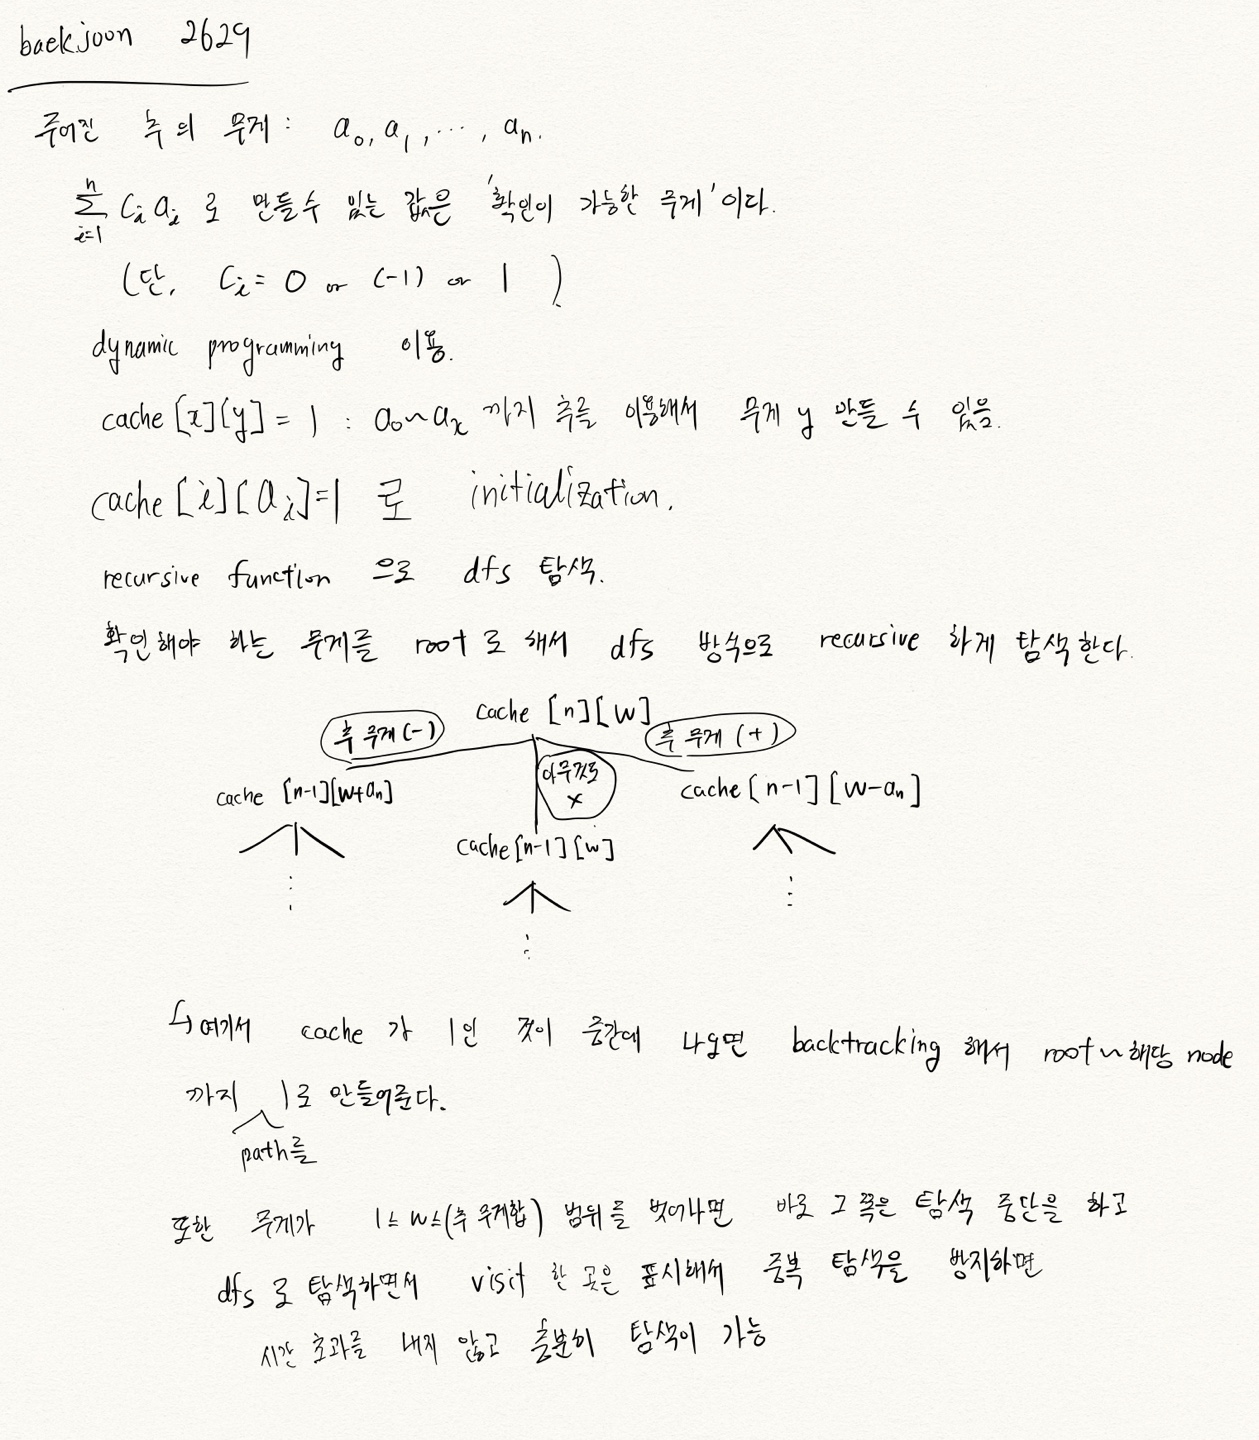 baekjoon 2629
주어진 추의 무게 : a₀, a₁, ⋯, aₙ.
n
∑ Cᵢ aᵢ 로 만들수 있는 값은 '확인이 가능한 무게' 이다.
i=1
(단, Cᵢ = 0 or (-1) or 1 )
dynamic programming 이용.
cache [x][y] = 1 : a₀~aₓ 까지 추를 이용해서 무게 y 만들 수 있음.
cache [i][aᵢ]=1 로 initialization.
recursive function 으로 dfs 탐색.
확인해야 하는 무게를 root 로 해서 dfs 방식으로 recursive 하게 탐색한다.
cache [n][w]
추 무게(-) 추 무게 (+)
아무것도
x
cache [n-1][w+aₙ] cache [n-1][w-aₙ]
cache[n-1][w]
↳ 여기서 cache 가 1인 것이 중간에 나오면 backtracking 해서 root ~ 해당 node
까지 1로 만들어준다.
path를
또한 무게가 1≤ w ≤(추 무게합) 범위를 벗어나면 바로 그 쪽은 탐색 중단을 하고
dfs 로 탐색하면서 visit 한 곳은 표시해서 중복 탐색을 방지하면
시간 초과를 내지 않고 충분히 탐색이 가능